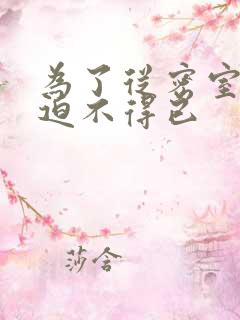 為了從密室
迫不得已
莎含